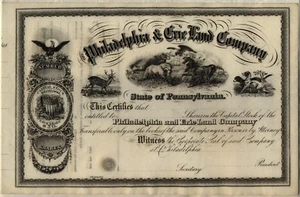 Philadelphia & Erie Land Company
State of Pennsylvania.
NUMBER
This Certifies that
entitled to Shares in the Capital Stock of the
Philadelphia and Erie Land Company
Transferable only on the books of the said Company in Person or by Attorney
Witness the Corporate Seal of said Company
at Philadelphia
President
Secretary
SHARES